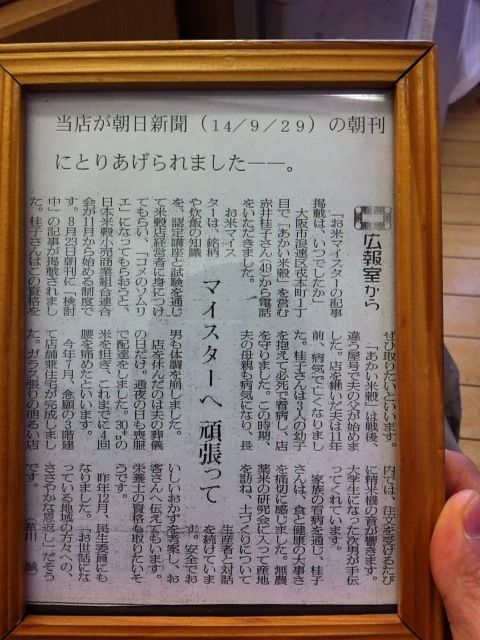 当店が朝日新聞（14/9/29）の朝刊
にとりあげられました――。
広報室から
マイスターへ 頑張って
「お米マイスターの記事
掲載は、いつでしたか」
大阪市浪速区戎本町1丁
目で「あかい米穀」を営む
赤井桂子さん(49)から電話
をいただきました。
お米マイス
ターは、銘柄
や炊飯の知識
を、認定講座と試験を通じ
て米穀店経営者に身につけ
てもらい、「コメのソムリ
エ」になってもらおうと、
日本米穀小売商業組合連合
会が11月から始める制度で
す。8月23日朝刊に「検討
中」の記事が掲載されまし
た。桂子さんはこの資格を
ぜひ取りたいといいます。
「あかい米穀」は戦後、
違う屋号で夫の父が始めま
した。店を継いだ夫は11年
前、病気で亡くなりまし
た。桂子さんは3人の幼子
を抱えて必死で看病し、店
を守りました。この時期、
夫の母親も病気になり、長
男も体調を崩しました。
店を休んだのは夫の葬儀
の日だけ。通夜の日も喪服
で配達をしました。30㌔の
米を担ぎ、これまでに4回
腰を痛めたといいます。
今年5月、念願の3階建
て店舗兼住宅が完成しまし
た。ガラス張りの明るい店
内では、注文を受けるたび
に精米機の音が響きます。
大学生になった次男が手伝
ってくれています。
家族の看病を通じ、桂子
さんは、食と健康の大事さ
を痛切に感じました。無農
薬米の研究会に入って産地
を訪ね、土づくりについて
生産者と対話
を続けていま
す。安全でお
いしいおかずを考案し、お
客さんへ伝えてもいます。
栄養士の資格も取りたいそ
うです。
昨年12月、民生委員にも
なりました。「お世話にな
っている地域の方々への、
ささやかな恩返し」だそう
です。